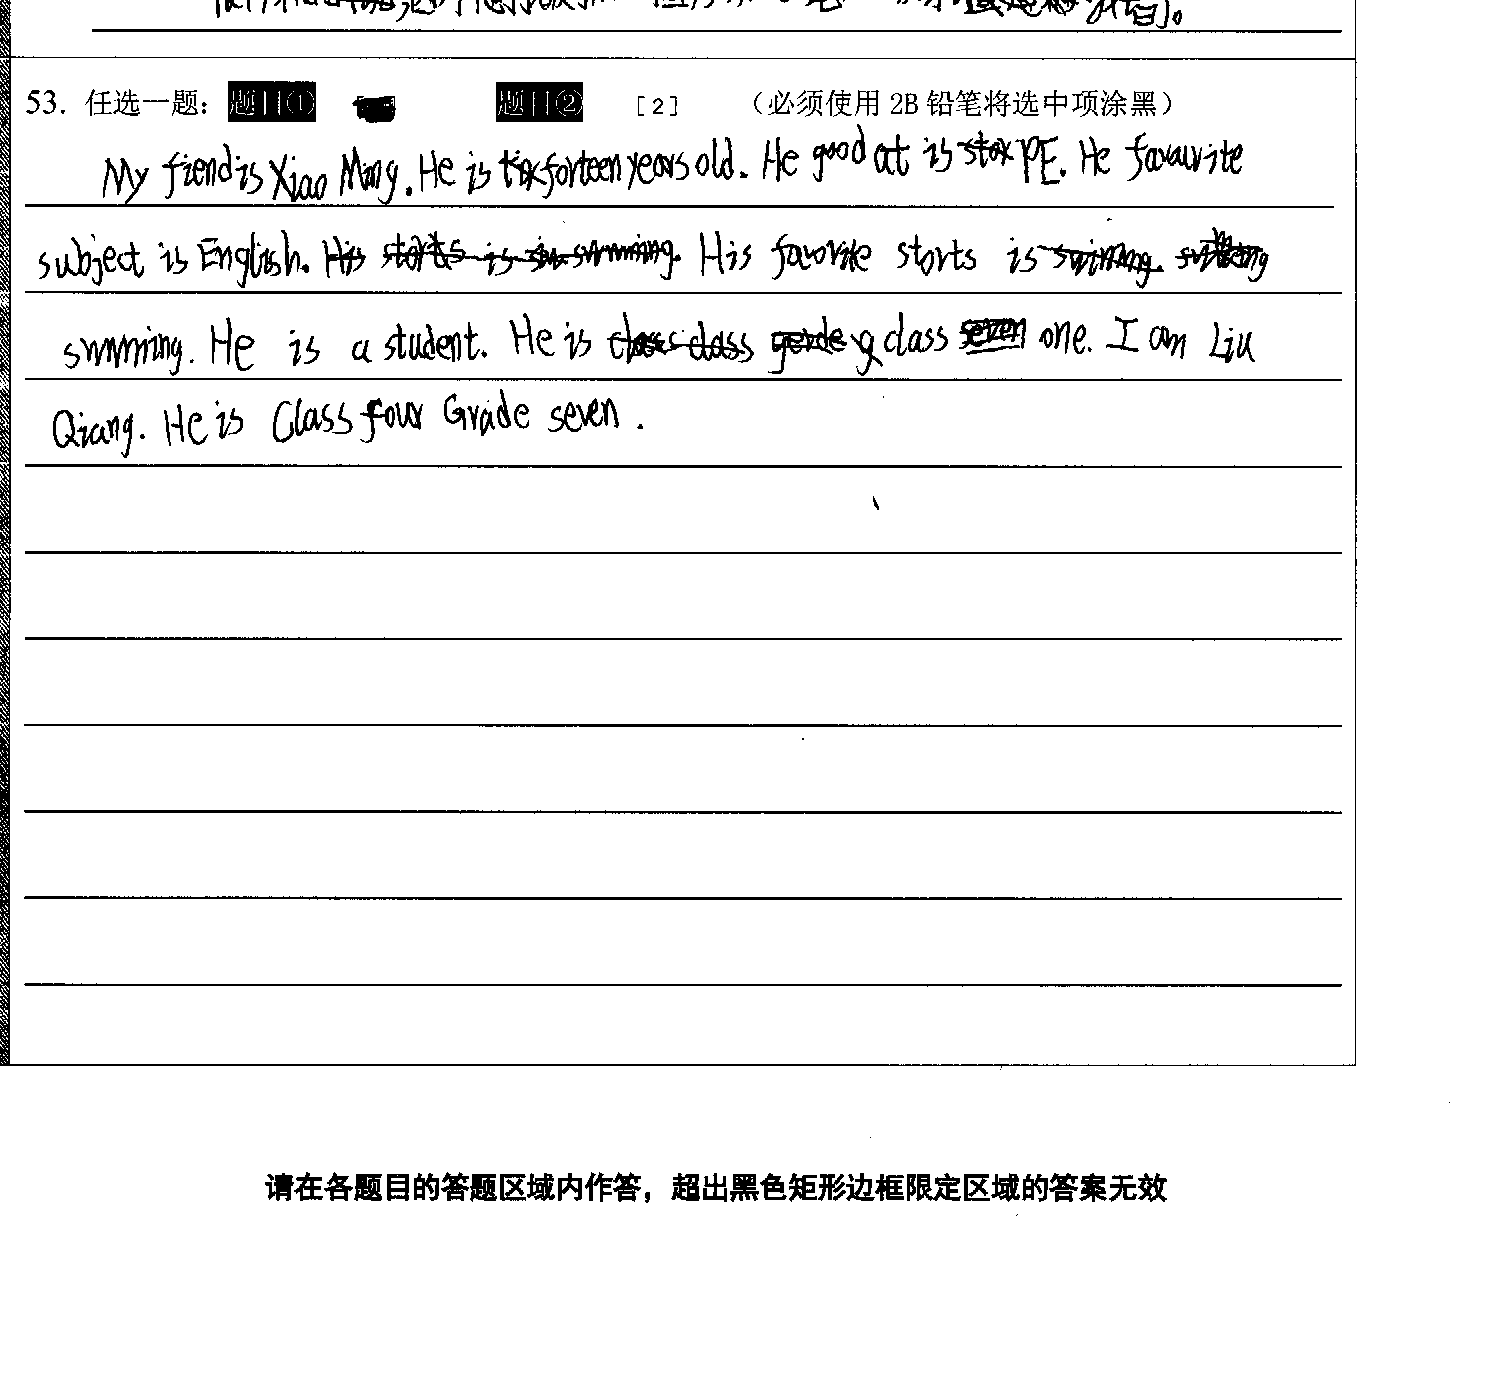 53. 任选一题： 题目① 题目② [2] （必须使用 2B 铅笔将选中项涂黑）
My fiend is Xiao Ming. He is forteen years old. He good at is PE. He favaurite
subject is English. His starts is in swmming. His favorite storts is
swmming. He is a student. He is class one. I am Liu
Qiang. He is Class four Grade seven.
请在各题目的答题区域内作答，超出黑色矩形边框限定区域的答案无效